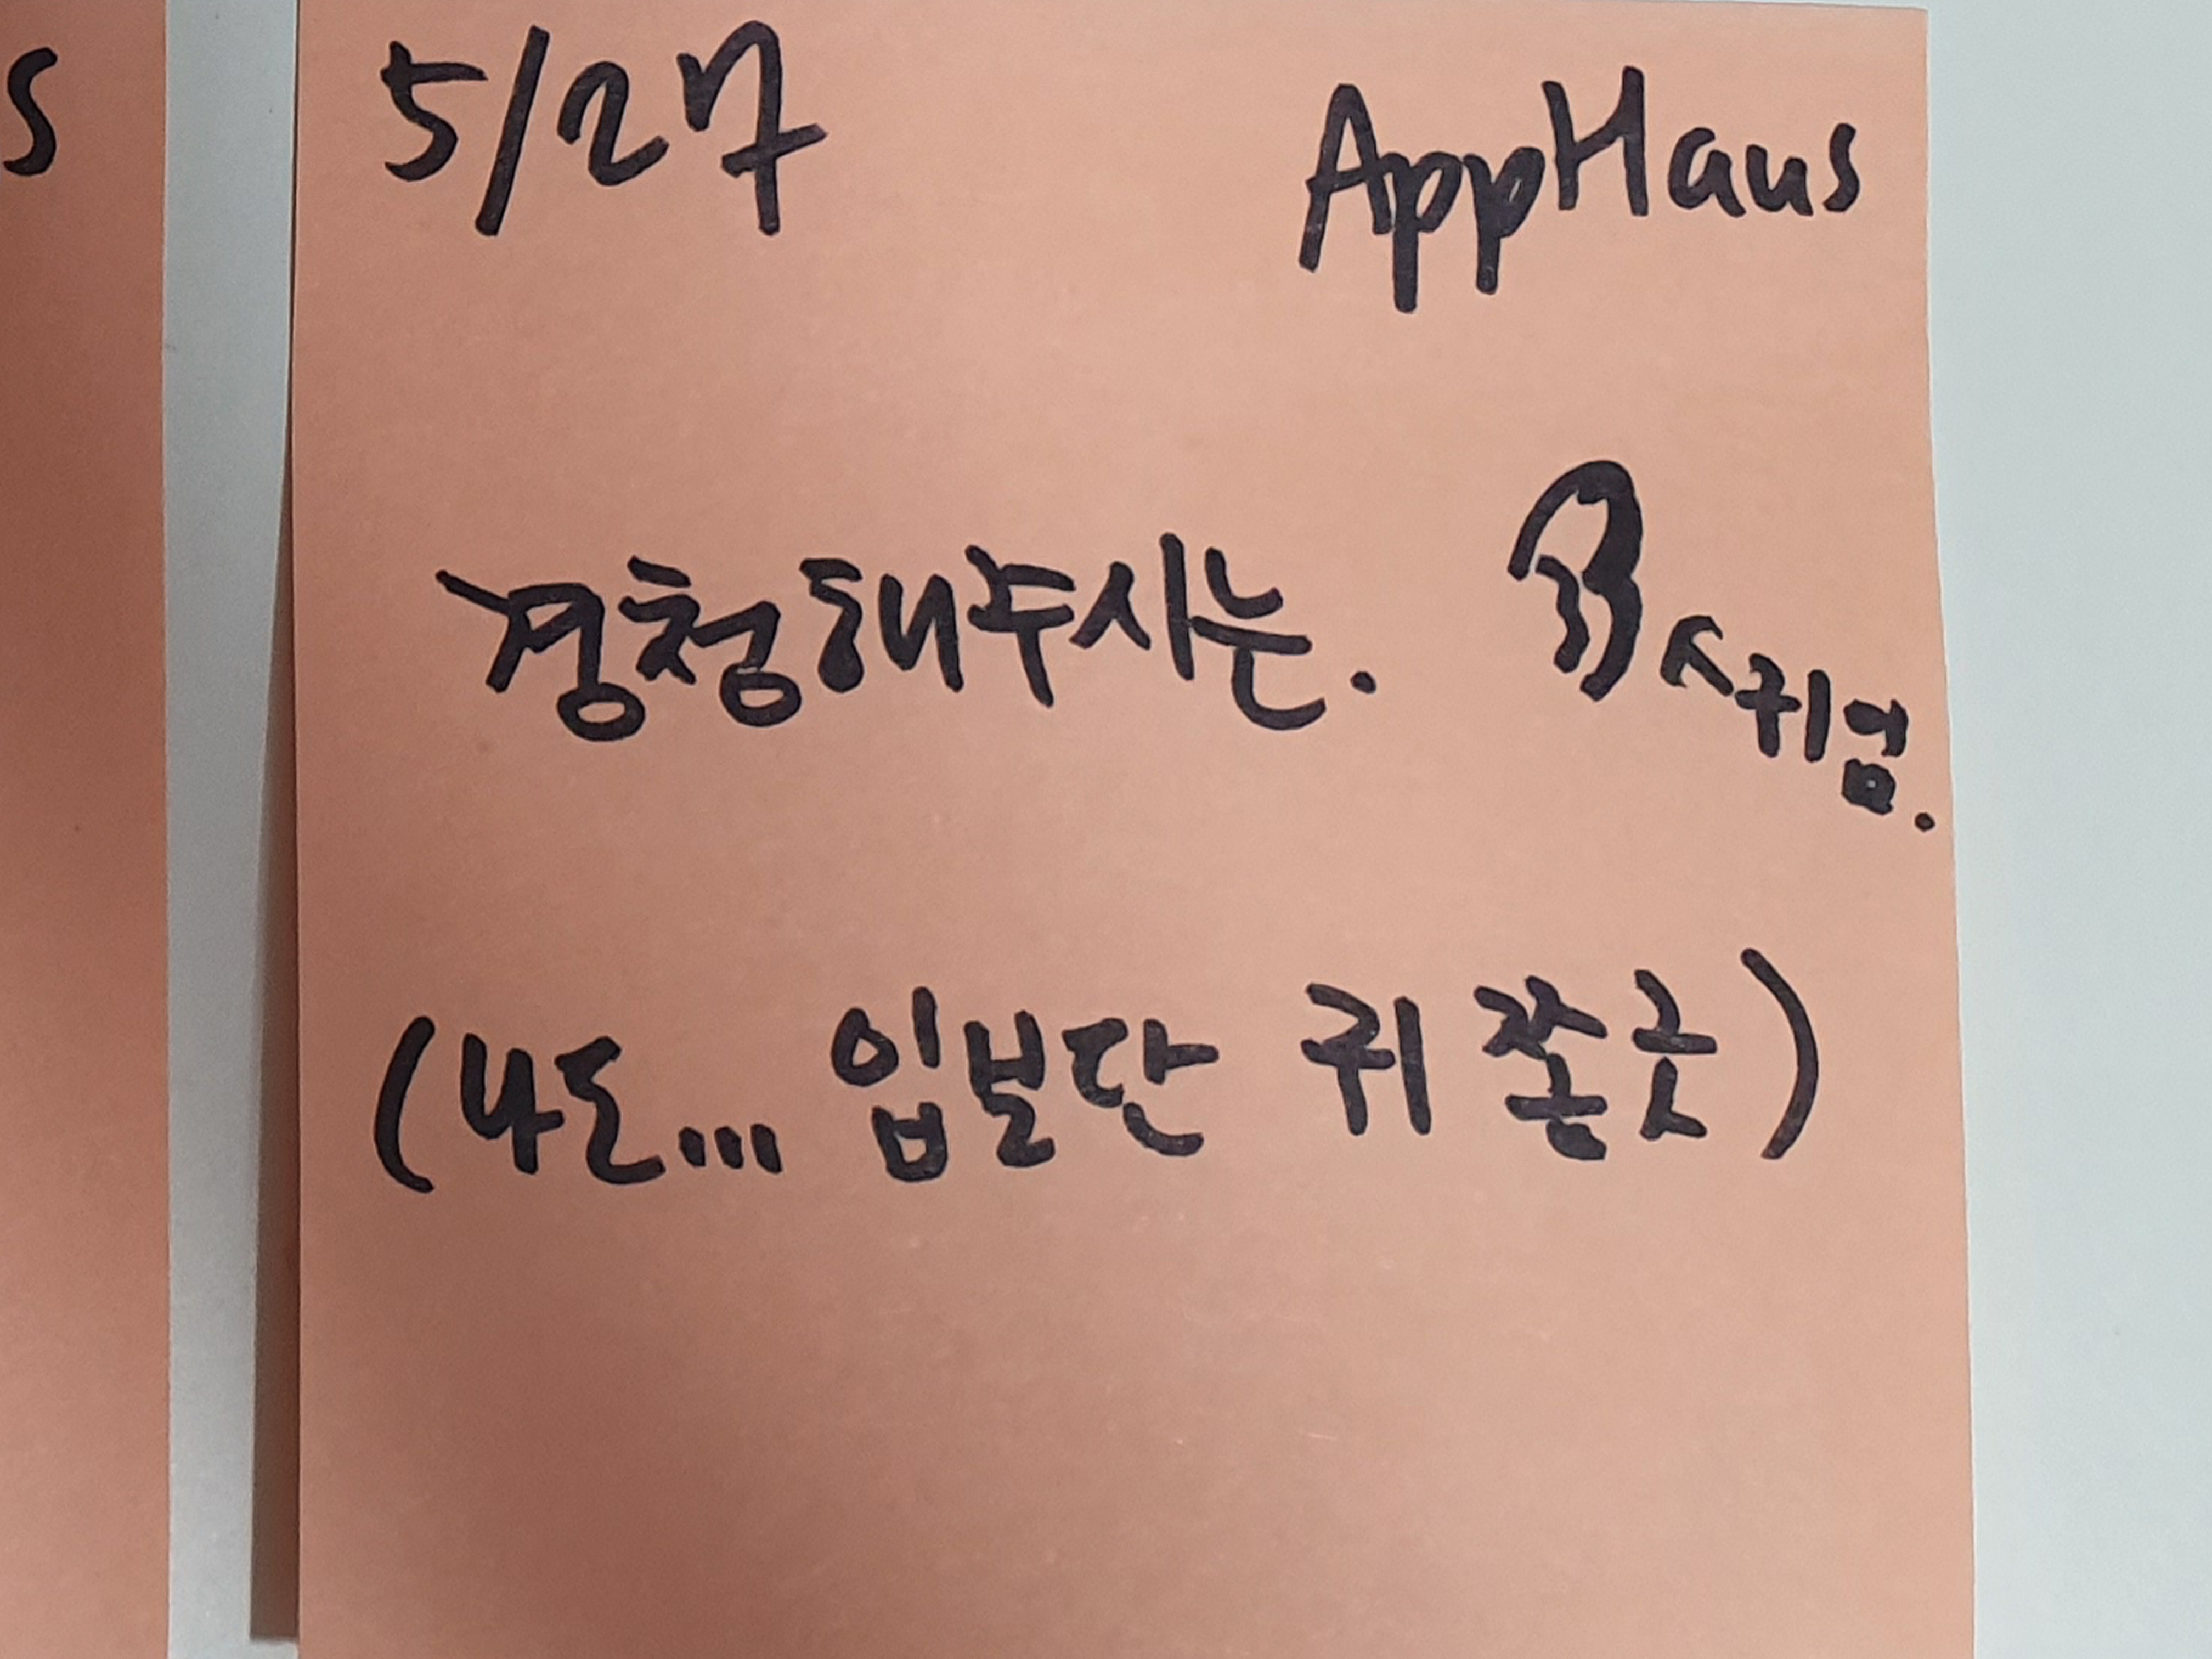 5/27 AppHaus
경청해주시는. 귀검.
(나도... 입보단 귀 쫑긋)
s